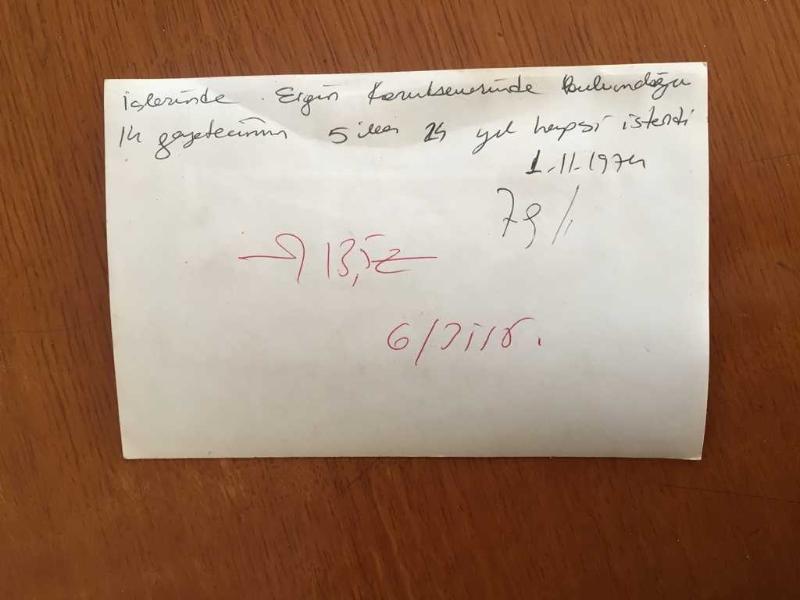 içlerinde Ergin Konuksever'inde bulunduğu
14 gazetecinin 5 ila 24 yıl hapsi istendi
1.11.1974
79/1
13,5
6/